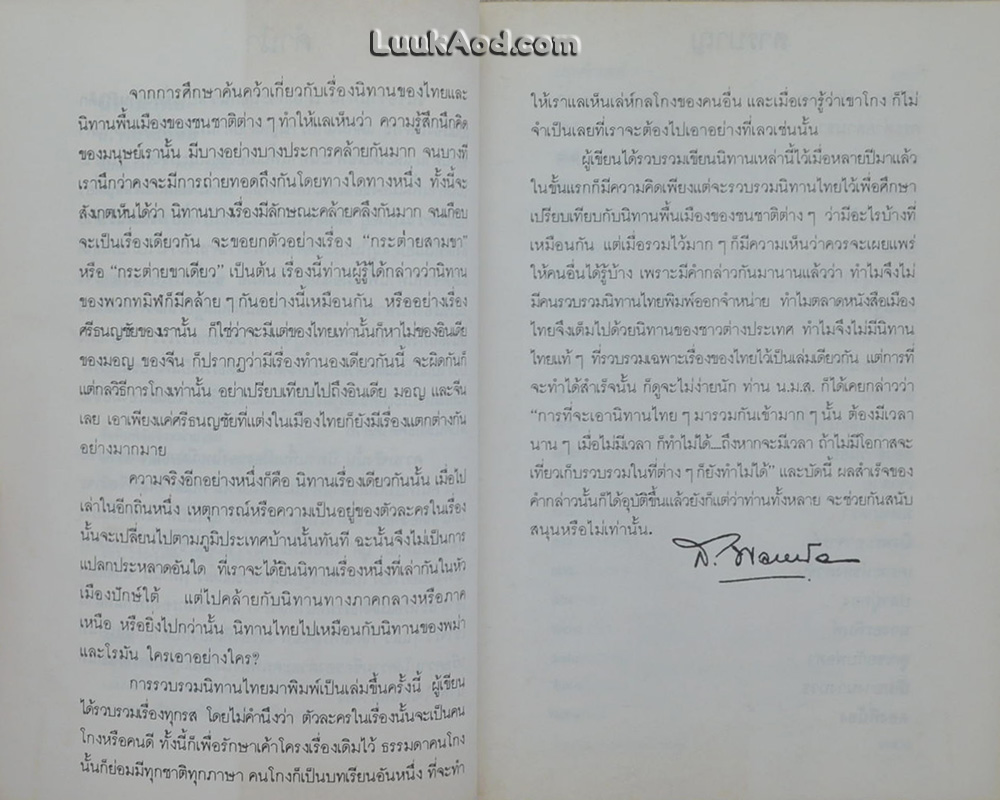 LuukAod.com
จากการศึกษาค้นคว้าเกี่ยวกับเรื่องนิทานของไทยและ
นิทานพื้นเมืองของชนชาติต่าง ๆ ทำให้แลเห็นว่า ความรู้สึกนึกคิด
ของมนุษย์เรานั้น มีบางอย่างบางประการคล้ายกันมาก จนบางที
เรานึกว่าคงจะมีการถ่ายทอดถึงกันโดยทางใดทางหนึ่ง ทั้งนี้จะ
สังเกตเห็นได้ว่า นิทานบางเรื่องมีลักษณะคล้ายคลึงกันมาก จนเกือบ
จะเป็นเรื่องเดียวกัน จะขอยกตัวอย่างเรื่อง “กระต่ายสามขา”
หรือ “กระต่ายขาเดียว” เป็นต้น เรื่องนี้ท่านผู้รู้ได้กล่าวว่านิทาน
ของพวกทมิฬก็มีคล้าย ๆ กันอย่างนี้เหมือนกัน หรืออย่างเรื่อง
ศรีธนญชัยของเรานั้น ก็ใช่ว่าจะมีแต่ของไทยเท่านั้นก็หาไม่ของอินเดีย
ของมอญ ของจีน ก็ปรากฏว่ามีเรื่องทำนองเดียวกันนี้ จะผิดกันก็
แต่กลวิธีการโกงเท่านั้น อย่าเปรียบเทียบไปถึงอินเดีย มอญ และจีน
เลย เอาเพียงแค่ศรีธนญชัยที่แต่งในเมืองไทยก็ยังมีเรื่องแตกต่างกัน
อย่างมากมาย
ความจริงอีกอย่างหนึ่งก็คือ นิทานเรื่องเดียวกันนั้น เมื่อไป
เล่าในอีกถิ่นหนึ่ง เหตุการณ์หรือความเป็นอยู่ของตัวละครในเรื่อง
นั้นจะเปลี่ยนไปตามภูมิประเทศบ้านนั้นทันที ฉะนั้นจึงไม่เป็นการ
แปลกประหลาดอันใด ที่เราจะได้ยินนิทานเรื่องหนึ่งที่เล่ากันในหัว
เมืองปักษ์ใต้ แต่ไปคล้ายกับนิทานทางภาคกลางหรือภาค
เหนือ หรือยิ่งไปกว่านั้น นิทานไทยไปเหมือนกับนิทานของพม่า
และโรมัน ใครเอาอย่างใคร?
การรวบรวมนิทานไทยมาพิมพ์เป็นเล่มขึ้นครั้งนี้ ผู้เขียน
ได้รวบรวมเรื่องทุกรส โดยไม่คำนึงว่า ตัวละครในเรื่องนั้นจะเป็นคน
โกงหรือคนดี ทั้งนี้ก็เพื่อรักษาเค้าโครงเรื่องเดิมไว้ ธรรมดาคนโกง
นั้นก็ย่อมมีทุกชาติทุกภาษา คนโกงก็เป็นบทเรียนอันหนึ่ง ที่จะทำ
ให้เราแลเห็นเล่ห์กลโกงของคนอื่น และเมื่อเรารู้ว่าเขาโกง ก็ไม่
จำเป็นเลยที่เราจะต้องไปเอาอย่างที่เลวเช่นนั้น
ผู้เขียนได้รวบรวมเขียนนิทานเหล่านี้ไว้เมื่อหลายปีมาแล้ว
ในขั้นแรกก็มีความคิดเพียงแต่จะรวบรวมนิทานไทยไว้เพื่อศึกษา
เปรียบเทียบกับนิทานพื้นเมืองของชนชาติต่าง ๆ ว่ามีอะไรบ้างที่
เหมือนกัน แต่เมื่อรวมไว้มาก ๆ ก็มีความเห็นว่าควรจะเผยแพร่
ให้คนอื่นได้รู้บ้าง เพราะมีคำกล่าวกันมานานแล้วว่า ทำไมจึงไม่
มีคนรวบรวมนิทานไทยพิมพ์ออกจำหน่าย ทำไมตลาดหนังสือเมือง
ไทยจึงเต็มไปด้วยนิทานของชาวต่างประเทศ ทำไมจึงไม่มีนิทาน
ไทยแท้ ๆ ที่รวบรวมเฉพาะเรื่องของไทยไว้เป็นเล่มเดียวกัน แต่การที่
จะทำได้สำเร็จนั้น ก็ดูจะไม่ง่ายนัก ท่าน น.ม.ส. ก็ได้เคยกล่าวว่า
“การที่จะเอานิทานไทย ๆ มารวมกันเข้ามาก ๆ นั้น ต้องมีเวลา
นาน ๆ เมื่อไม่มีเวลา ก็ทำไม่ได้...ถึงหากจะมีเวลา ถ้าไม่มีโอกาสจะ
เที่ยวเก็บรวบรวมในที่ต่าง ๆ ก็ยังทำไม่ได้” และบัดนี้ ผลสำเร็จของ
คำกล่าวนั้นก็ได้อุบัติขึ้นแล้วยังก็แต่ว่าท่านทั้งหลาย จะช่วยกันสนับ
สนุนหรือไม่เท่านั้น.